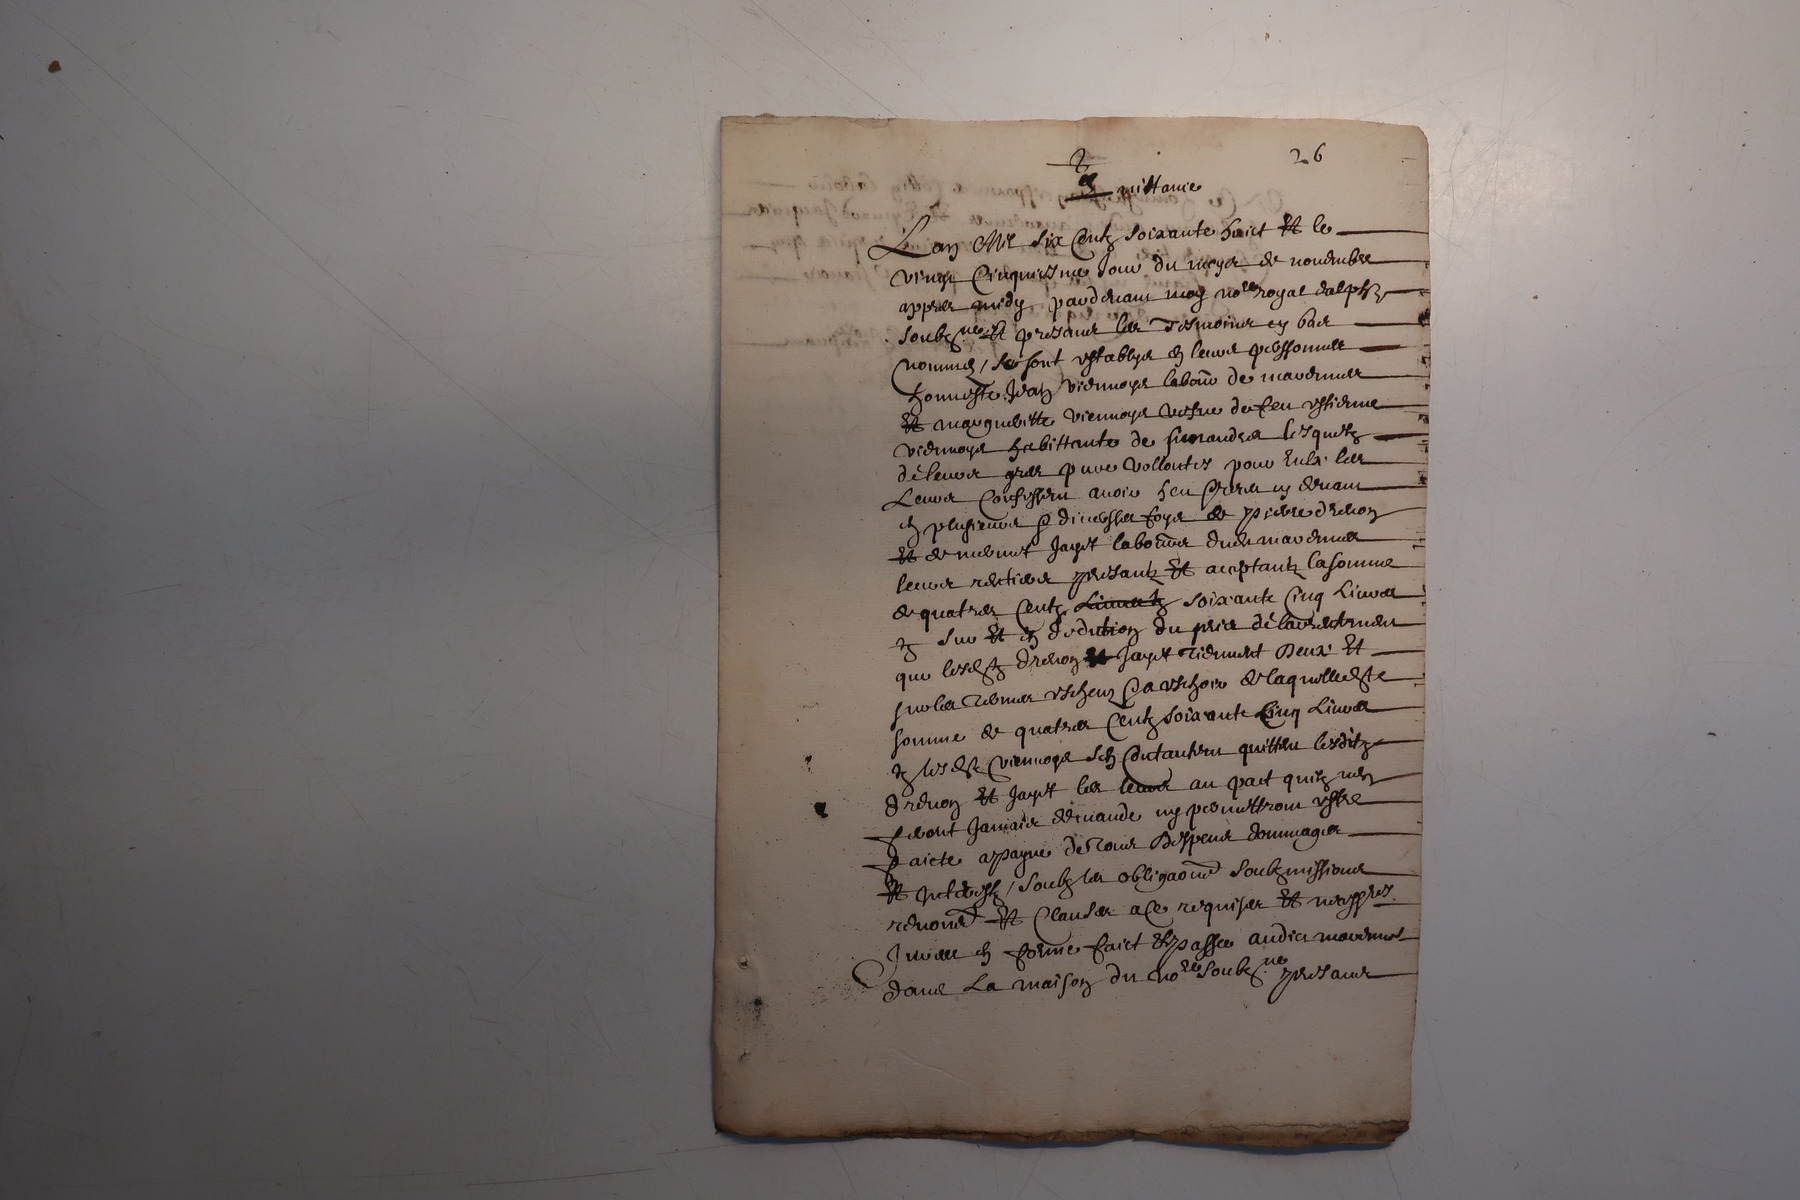 26
Quittance
Lan Mil Six Centz soixante huict Et le
vingt Cinquiesme Jour du moys de novembre
appres midy pardevant moy no.re royal dalph.
soubz.ne Et presans les Tesmoins cy bas
nommes / se sont establys en leurs personnes
honneste Jean viennoys labour de
Et margueritte viennoys vefve de feu estienne
viennoys habittante de lesquelz
de leurs gres pure vollontes pour Eulx les
Leurs Confessent avoir heu Receu cy devant
en plusieurs & diverses foys de pierre drevon
Et de Jayet labours dud
leurs rentiers presantz Et acceptantz la somme
de quatre Centz soixante Cinq Livres
sur Et en deduction du pris de larrentement
que lesd drevon Et Jayet Tiennent deux Et
sur les Termes escheuz Ca eschoir de laquelle dte
somme de quatre Centz soixante Cinq Livres
lesd viennoys sen Contantent quittent lesditz
drevon Et Jayet les leurs au pact quilz nen
feront Jamais demande ny permettront estre
faicte a payne de Tous Despens dommages
Et Interestz / soubz les obligaons soubzmissions
renons Et Clauses a Ce requises Et necess.res
Jurees en forme faict Et passe audict
dans La maison du no.re soubz.ne presans